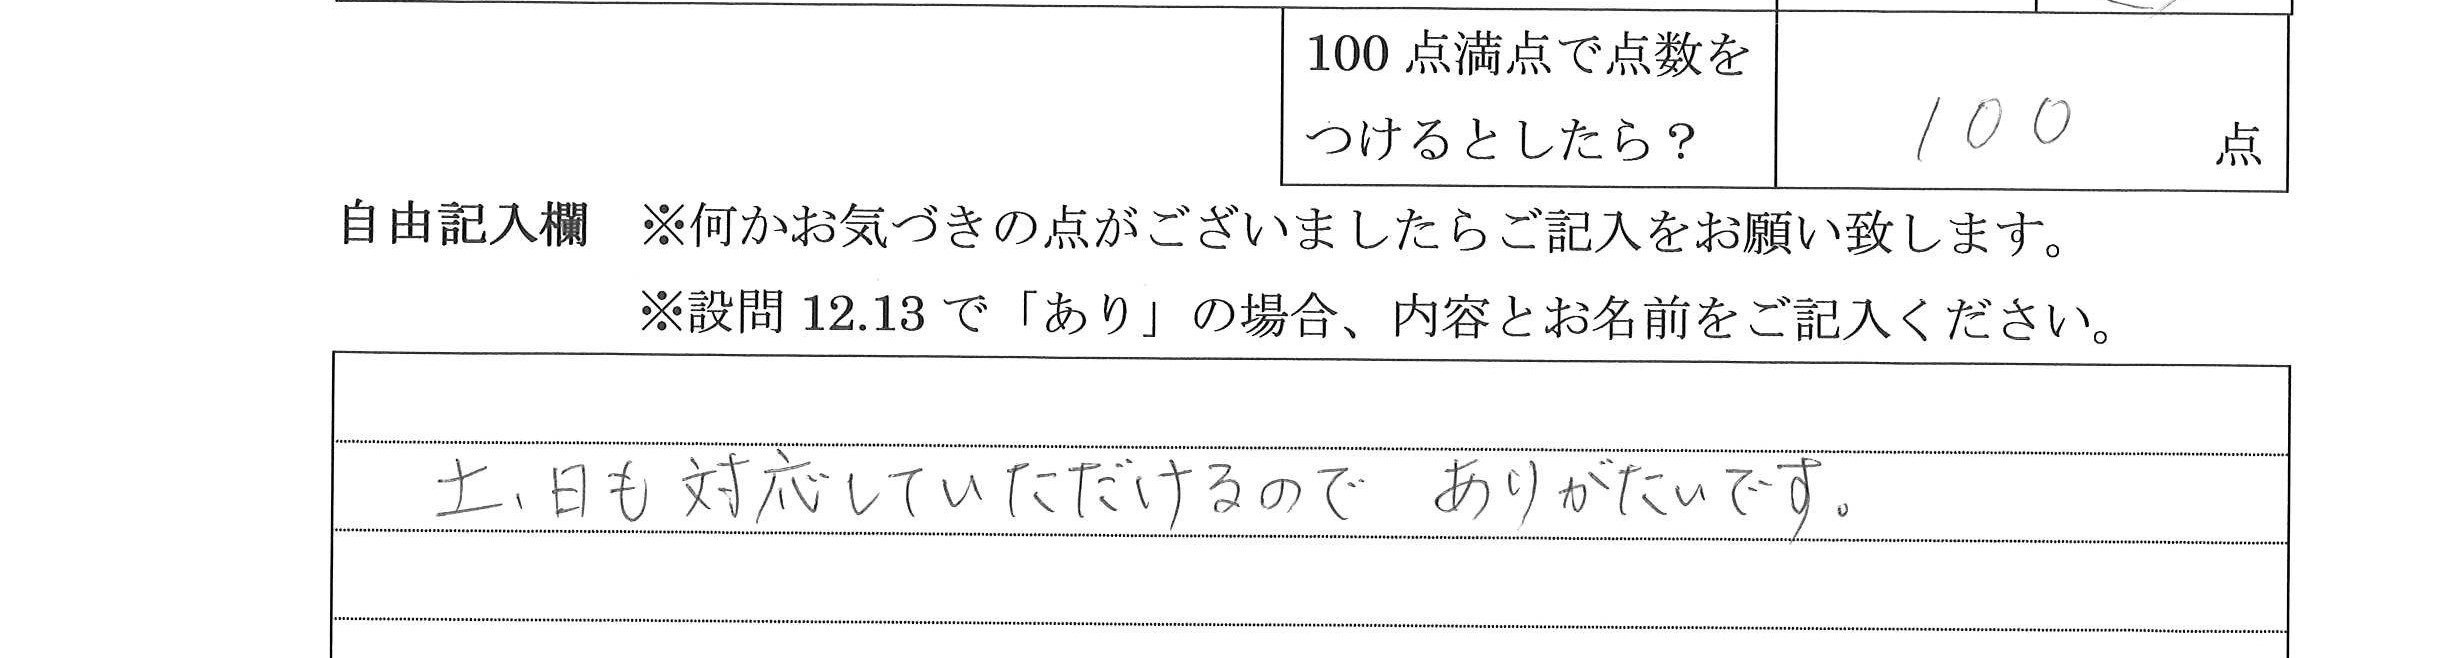 100 点満点で点数を
つけるとしたら？
100 点
自由記入欄 ※何かお気づきの点がございましたらご記入をお願い致します。
※設問 12.13 で「あり」の場合、内容とお名前をご記入ください。
土、日も対応していただけるので ありがたいです。